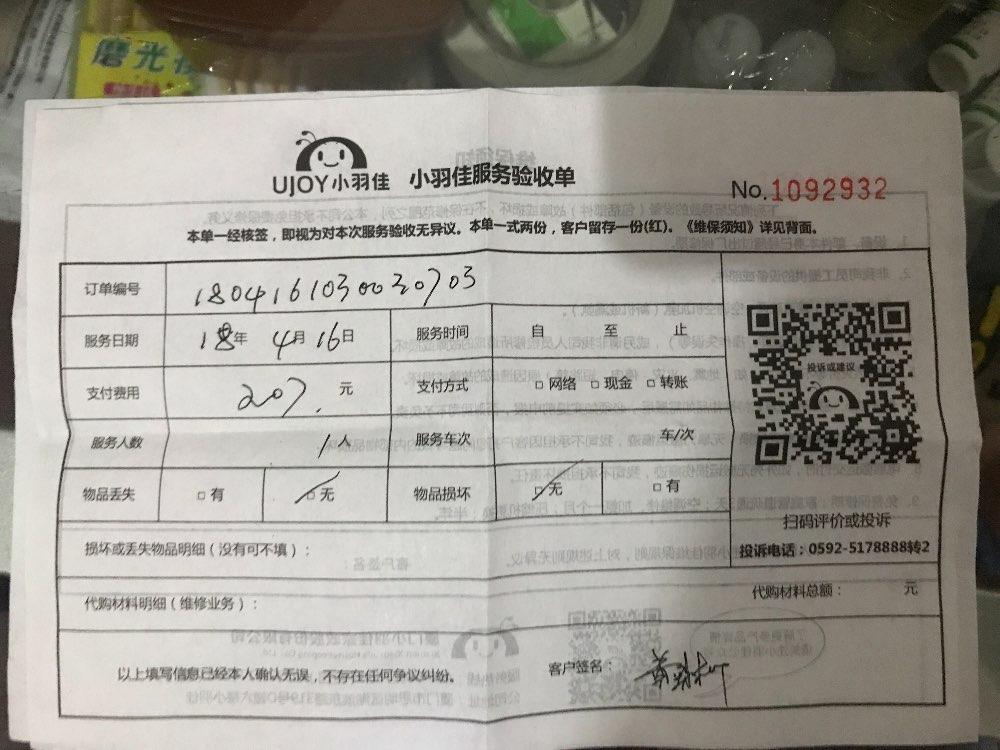 磨光
UJOY小羽佳 小羽佳服务验收单
No.1092932
本单一经核签，即视为对本次服务验收无异议。本单一式两份，客户留存一份(红)。《维保须知》详见背面。
订单编号 1804161030030703
服务日期 18年 4月 16日 服务时间 自 至 止
支付费用 207. 元 支付方式 □ 网络 □ 现金 □ 转账
服务人数 1人 服务车次 车/次
物品丢失 □ 有 □ 无 物品损坏 □ 无 □ 有
投诉或建议
扫码评价或投诉
投诉电话：0592-5178888转2
损坏或丢失物品明细（没有可不填）：
代购材料明细（维修业务）：
代购材料总额： 元
以上填写信息已经本人确认无误，不存在任何争议纠纷。
客户签名：